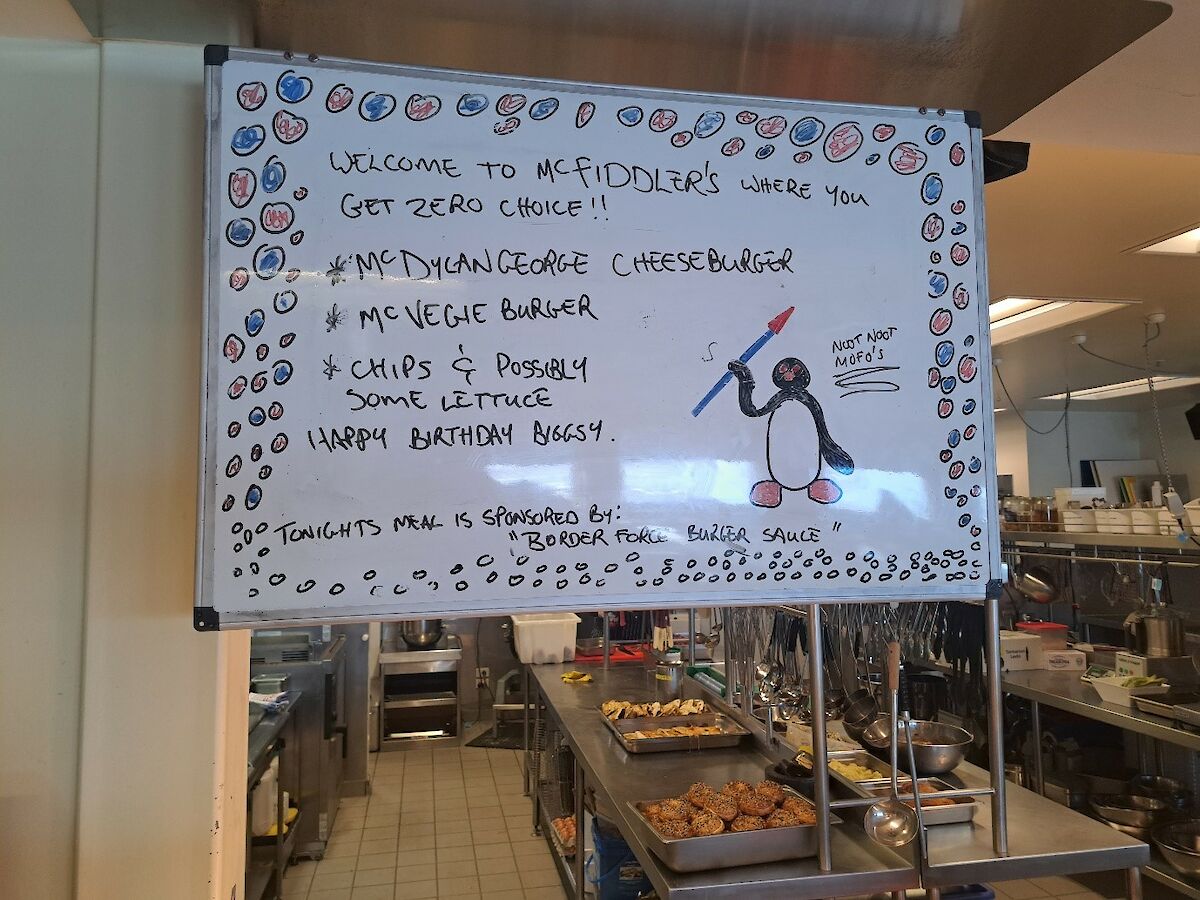 WELCOME TO McFIDDLER'S WHERE YOU
GET ZERO CHOICE!!
* McDYLANGEORGE CHEESEBURGER
* McVEGIE BURGER
* CHIPS & POSSIBLY
SOME LETTUCE
HAPPY BIRTHDAY BIGGSY.
NOOT NOOT
MOFO'S
TONIGHTS MEAL IS SPONSORED BY:
"BORDER FORCE BURGER SAUCE"